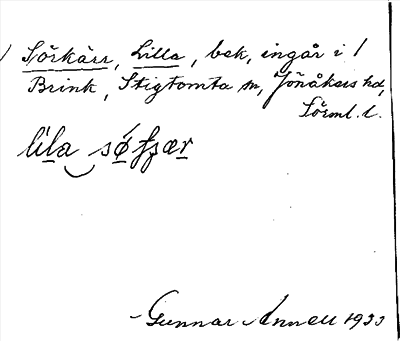 Sörkärr, Lilla, bek, ingår i /
Brink, Stigtomta sn, Jönåkers hd,
Sörml. l.
lila
Gunnar Annell 1933